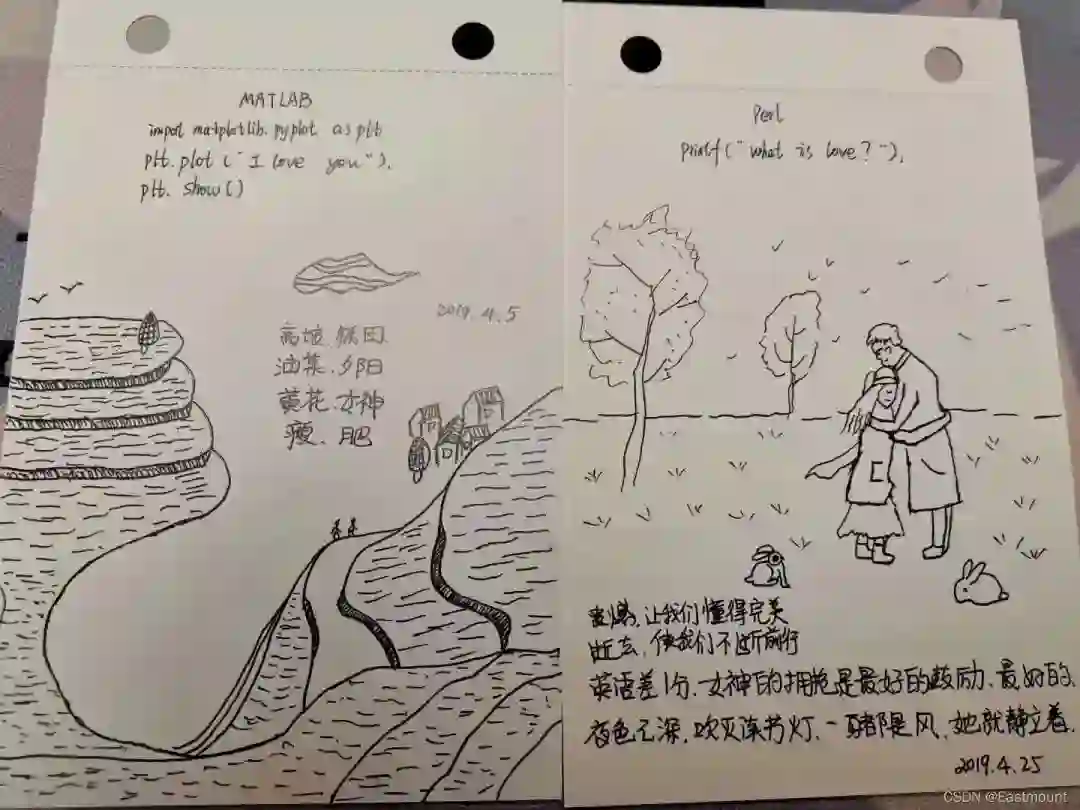 MATLAB
import matplotlib.pyplot as plt
plt.plot("I love you");
plt. show()
2019.4.5
高坡.
油菜.夕阳
黄花.女神
瘦、肥
Perl
printf("what is love?");
让我们懂得完美
逝去,使我们不断前行
英语差1分,女神的拥抱是最好的鼓励、最好的.
夜色已深,吹灭读书灯,一 都是风,她就静立着.
2019.4.25
CSDN @Eastmount